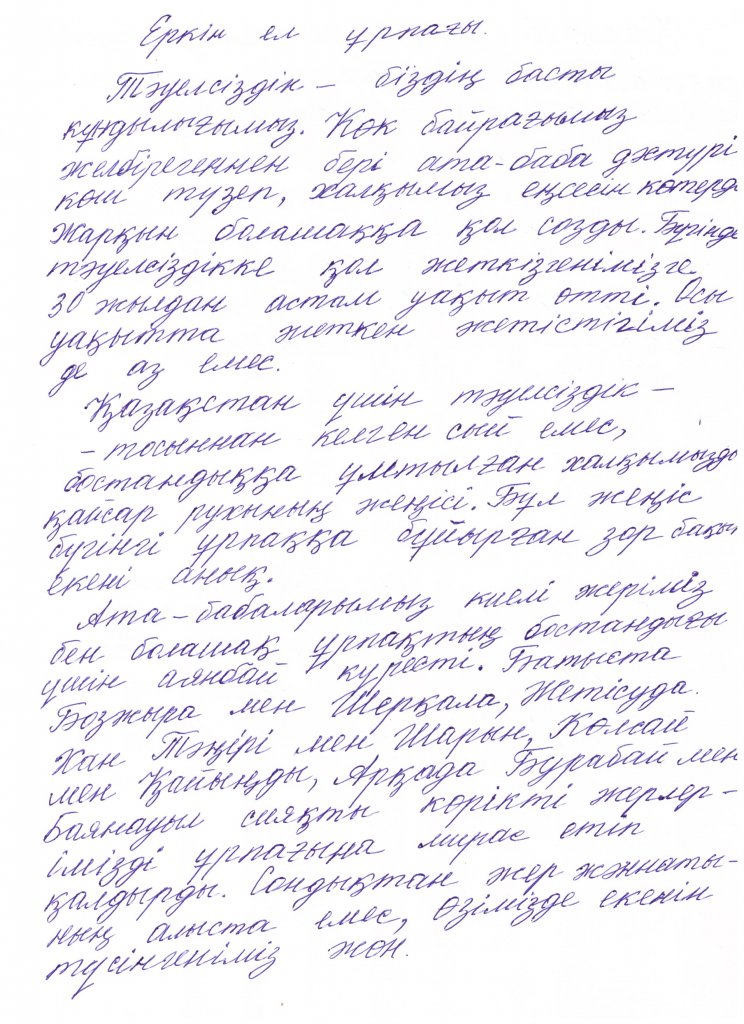 Еркін ел ұрпағы.
Тәуелсіздік – біздің басты
құндылығымыз. Көк байрағымыз
желбірегеннен бері ата-баба дәстүрі
көш түзеп, халқымыз еңсесін көтерд
Жарқын болашаққа қол созды. Бүгінде
тәуелсіздікке қол жеткізгенімізге
30 жылдан астам уақыт өтті. Осы
уақытта жеткен жетістігіміз
де аз емес.
Қазақстан үшін тәуелсіздік –
– тосыннан келген сый емес,
бостандыққа ұмтылған халқымызды
қайсар рухының жеңісі. Бұл жеңіс
бүгінгі ұрпаққа бұйырған зор бақы
екені анық.
Ата-бабаларымыз киелі жеріміз
бен болашақ ұрпақтың бостандығы
үшін аянбай күресті. Батыста
Бозжыра мен Шерқала, Жетісуда
Хан Тәңірі мен Шарын, Көлсай
мен Қайыңды, Арқада Бурабай мен
Баянауыл сияқты көрікті жерлер-
імізді ұрпағына мирас етіп
қалдырды. Сондықтан жер жәннаты-
ның алыста емес, өзімізде екенін
түсінгеніміз жөн.